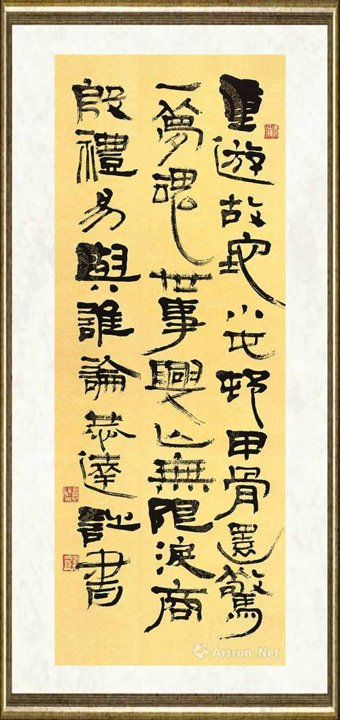 重游故地小屯邨甲骨還驚
一夢魂世事興亡無限淚商
殷禮易與誰論恭達詩書
Artron.Net